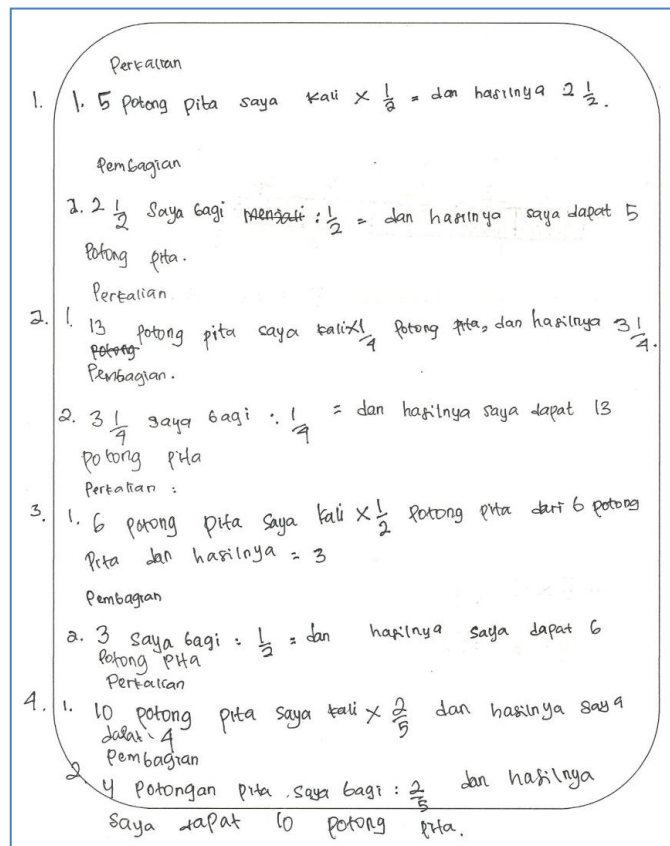 Perkalian
1. 1. 5 Potong pita saya kali × 1/2 = dan hasilnya 2 1/2.
Pembagian
2. 2 1/2 Saya bagi menjadi : 1/2 = dan hasilnya saya dapat 5
Potong pita.
Perkalian
2. 1. 13 potong pita saya kali × 1/4 potong pita, dan hasilnya 3 1/4.
potong
Pembagian.
2. 3 1/4 saya bagi : 1/4 = dan hasilnya saya dapat 13
potong pita
Perkalian :
3. 1. 6 potong pita saya kali × 1/2 potong pita dari 6 potong
Pita dan hasilnya = 3
Pembagian
2. 3 saya bagi : 1/2 = dan hasilnya saya dapat 6
Potong Pita
Perkalian
4. 1. 10 potong pita saya kali × 2/5 dan hasilnya saya
4
Pembagian
2 4 Potongan pita saya bagi : 2/5 dan hasilnya
saya dapat 10 potong pita.